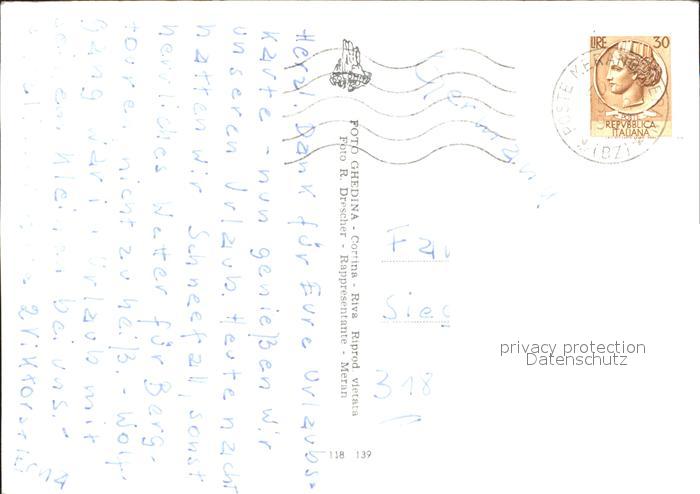 Herzl. Dank für Eure Urlaubs-
karte - nun genießen wir
unseren Urlaub. Heute nacht
hatten wir Schneefall, sonst
herrliches Wetter für Berg-
touren, nicht zu heiß. - Wolf-
gang war i. Urlaub mit
seinen Kleinen bei uns. -
FOTO GHEDINA - Cortina - Riva Riprod. vietata
Foto R. Drescher - Rappresentante - Meran
118 139
LIRE 30
REPVBBLICA
ITALIANA
POSTE
(BZ)
Germania
Fa
Sieg
318
privacy protection
Datenschutz